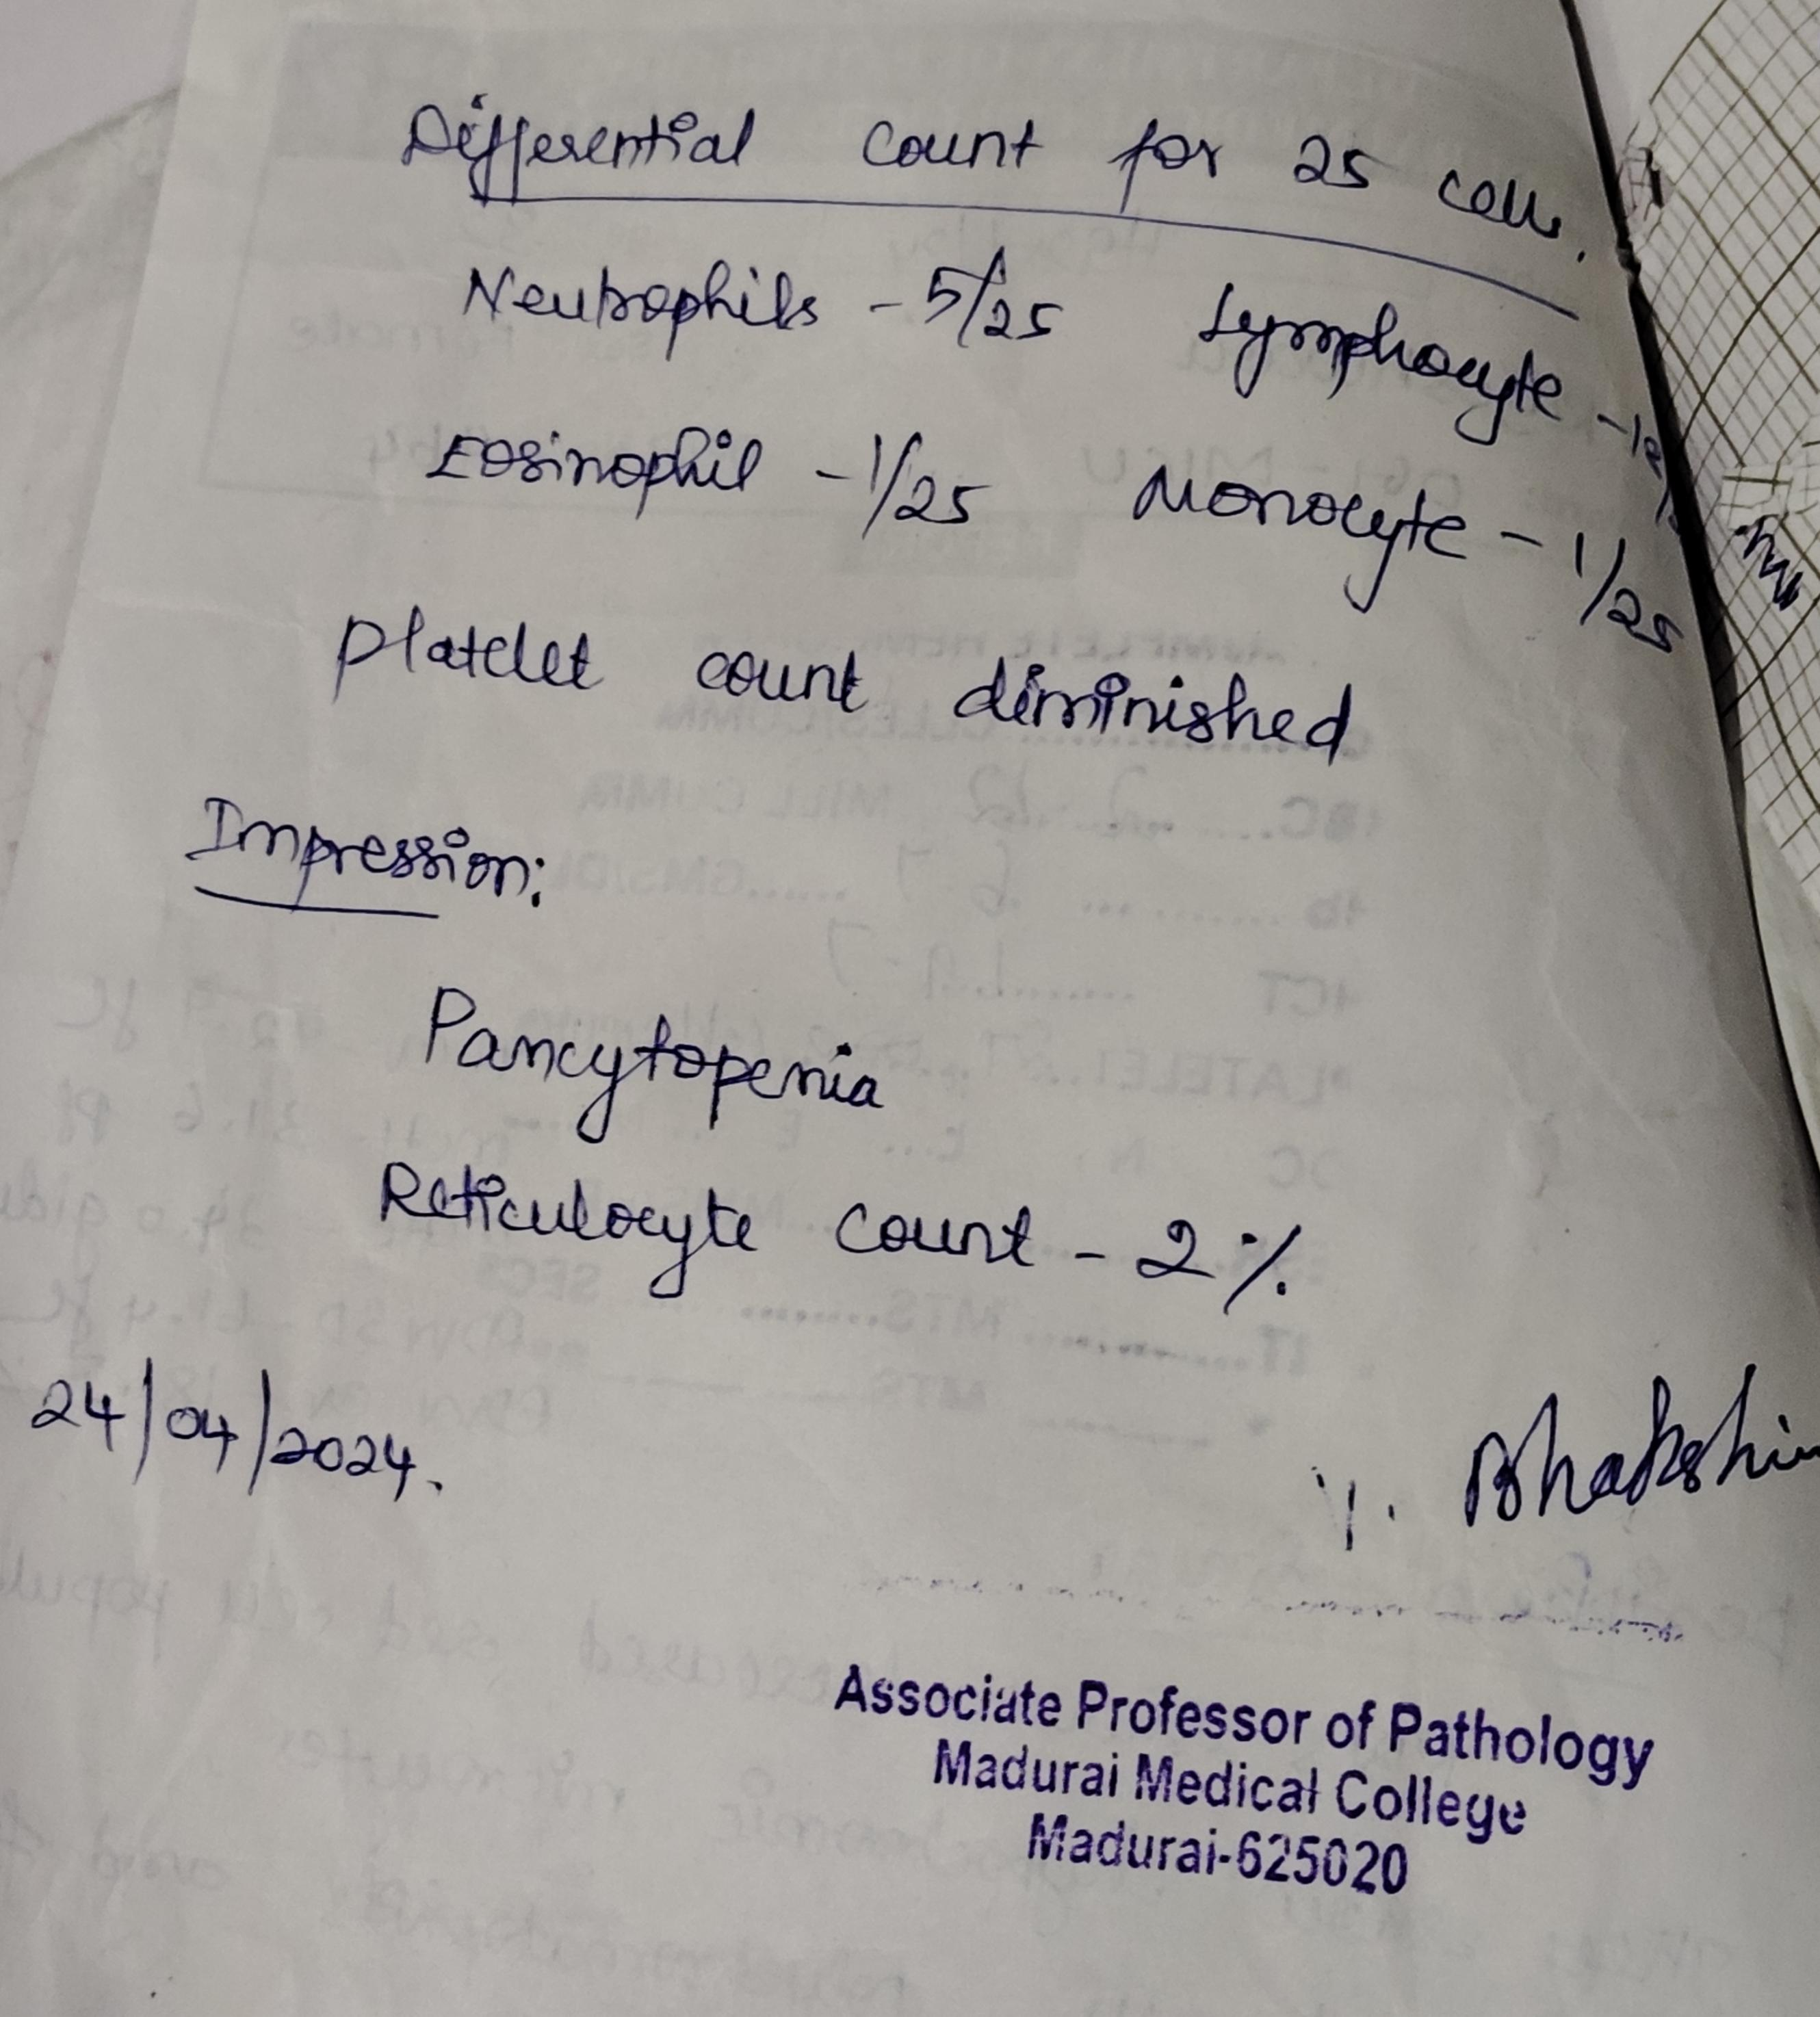 Differential count for 25 cells.
Neutrophils - 5/25 Lymphocyte -
Eosinophil - 1/25 Monocyte - 1/25
Platelet count diminished
Impression:
Pancytopenia
Reticulocyte count - 2%
24/04/2024.
Associate Professor of Pathology
Madurai Medical College
Madurai-625020